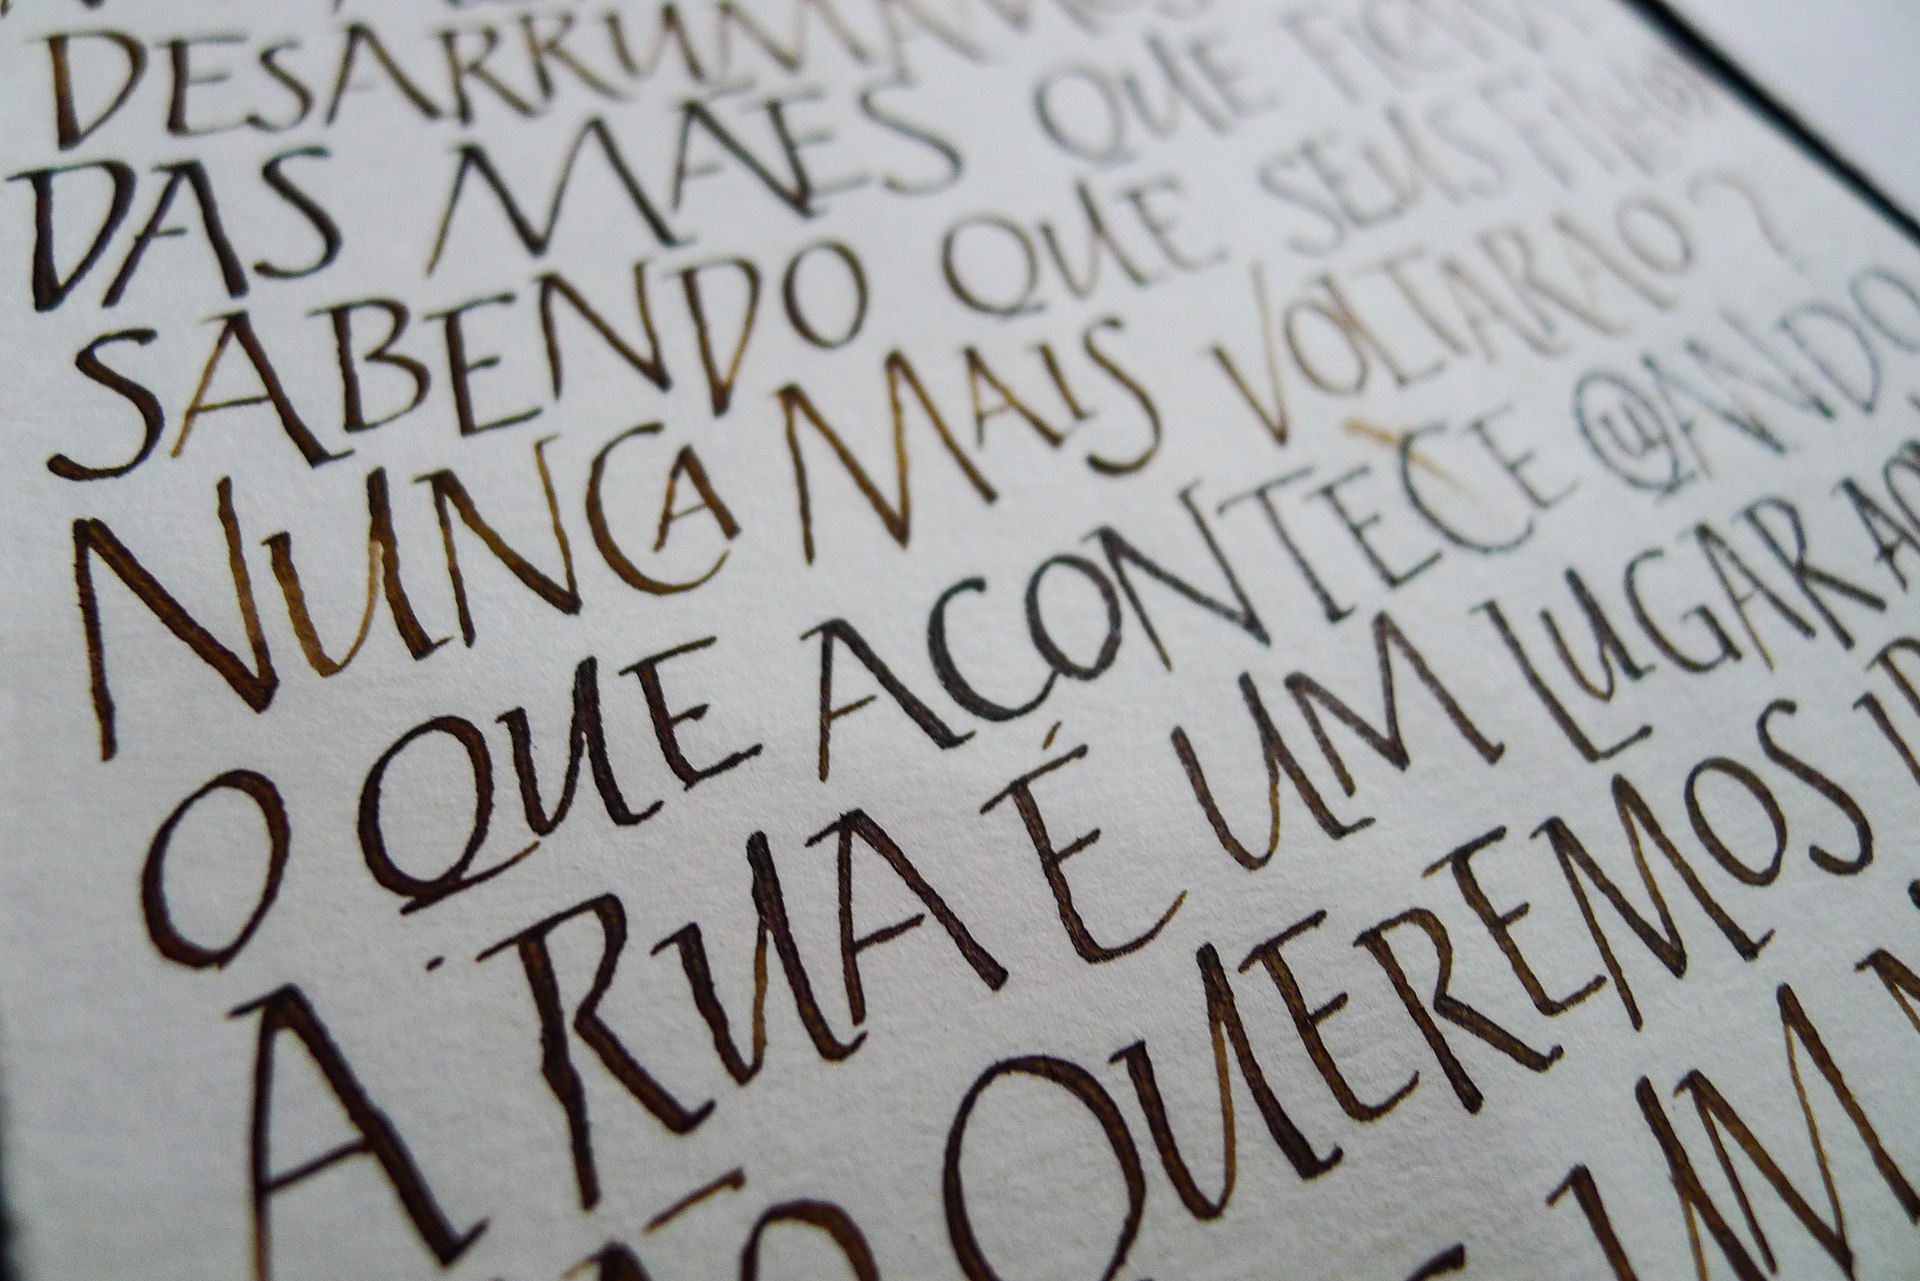 DAS MAES QUE
SABENDO QUE SEUS
NUNCA MAIS VOLTARAO?
O QUE ACONTECE QUANDO
A RUA É UM LUGAR
QUEREMOS
UM